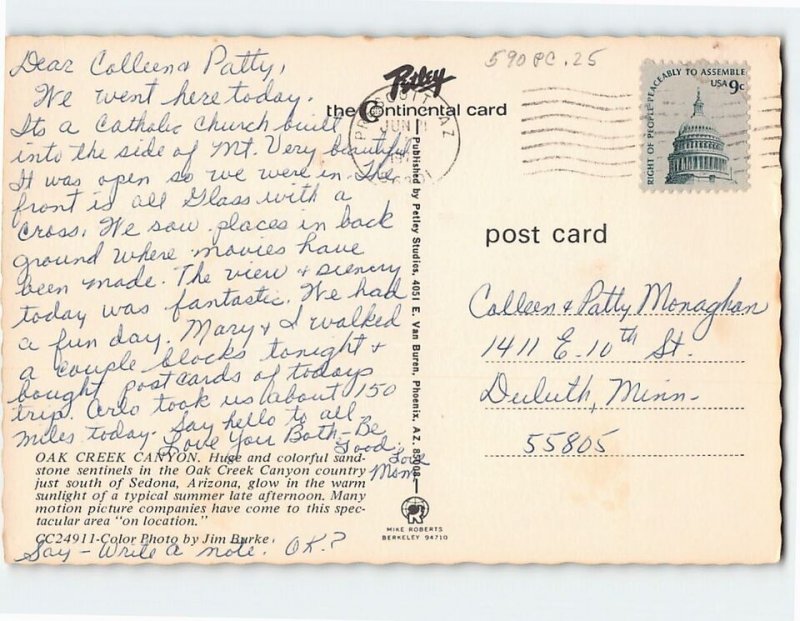 590 PC .25
Dear Colleen & Patty,
We went here today.
Its a Catholic Church built
into the side of Mt. Very beautiful
It was open so we were in. The
front is all Glass with a
cross. We saw places in back
ground where movies have
been made. The view & scenery
today was fantastic. We had
a fun day. Mary & I walked
a couple blocks tonight &
bought postcards of todays
trip. Arlo took us about 150
miles today. Say hello to all
Love Your Both - Be
Good. Love
Mom
OAK CREEK CANYON. Huge and colorful sand-
stone sentinels in the Oak Creek Canyon country
just south of Sedona, Arizona, glow in the warm
sunlight of a typical summer late afternoon. Many
motion picture companies have come to this spec-
tacular area "on location."
CC24911-Color Photo by Jim Burke
Say - Write a note. OK.?
Petley
the Continental card
Published by Petley Studios, 4051 E. Van Buren, Phoenix, AZ. 85008
MIKE ROBERTS
BERKELEY 94710
AZ
JUN
RIGHT OF PEOPLE PEACEABLY TO ASSEMBLE
USA 9c
post card
Colleen & Patty Monaghan
1411 E-10th St.
Duluth, Minn-
55805